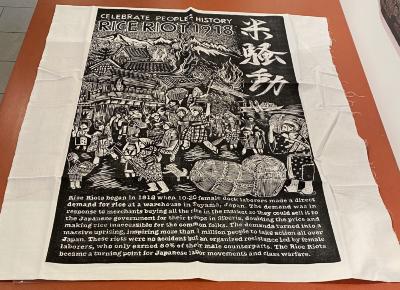 CELEBRATE PEOPLE'S HISTORY
RICE RIOT 1918
米騒動
Rice Riots began in 1918 when 10-20 female dock laborers made a direct
demand for rice at a warehouse in Toyama, Japan. The demand was in
response to merchants buying all the rice in the market so they could sell it to
the Japanese government for their troops in Siberia, doubling the price and
making rice inaccessible for the common folks. The demands turned into a
massive uprising, inspiring more than 1 million people to take action all over
Japan. These riots were no accident but an organized resistance led by female
laborers, who only earned 50% of their male counterparts. The Rice Riots
became a turning point for Japanese labor movements and class warfare.